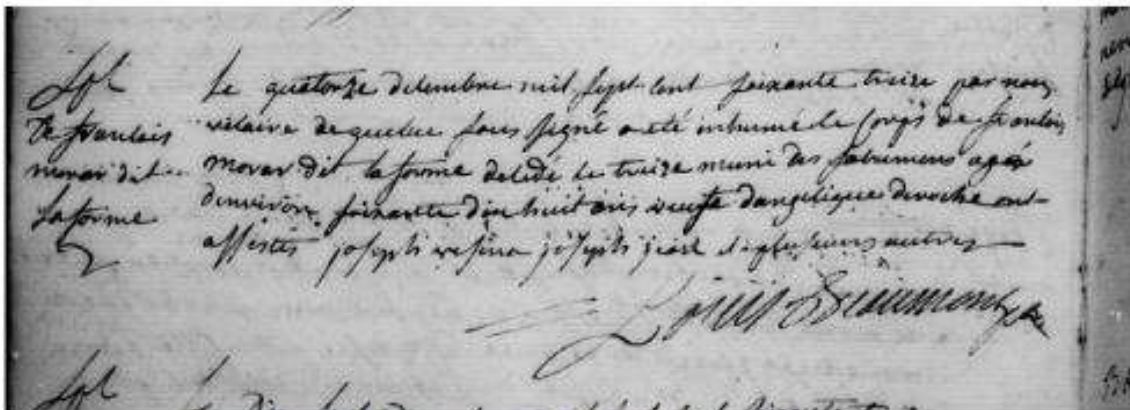 Spl
de francois
morar dit
laforme
le quatorze decembre mil sept cent soixante treize par nous
vicaire de quebec sous signé a été inhumé le corps de francois
morar dit laforme decedé le treize muni des sacremens agés
denviron soixante dix huit ans veufe dangelique deroche ont
assistés joseph vesina joseph jean & plusieurs autres
Louis Beaumont ptre
Spl